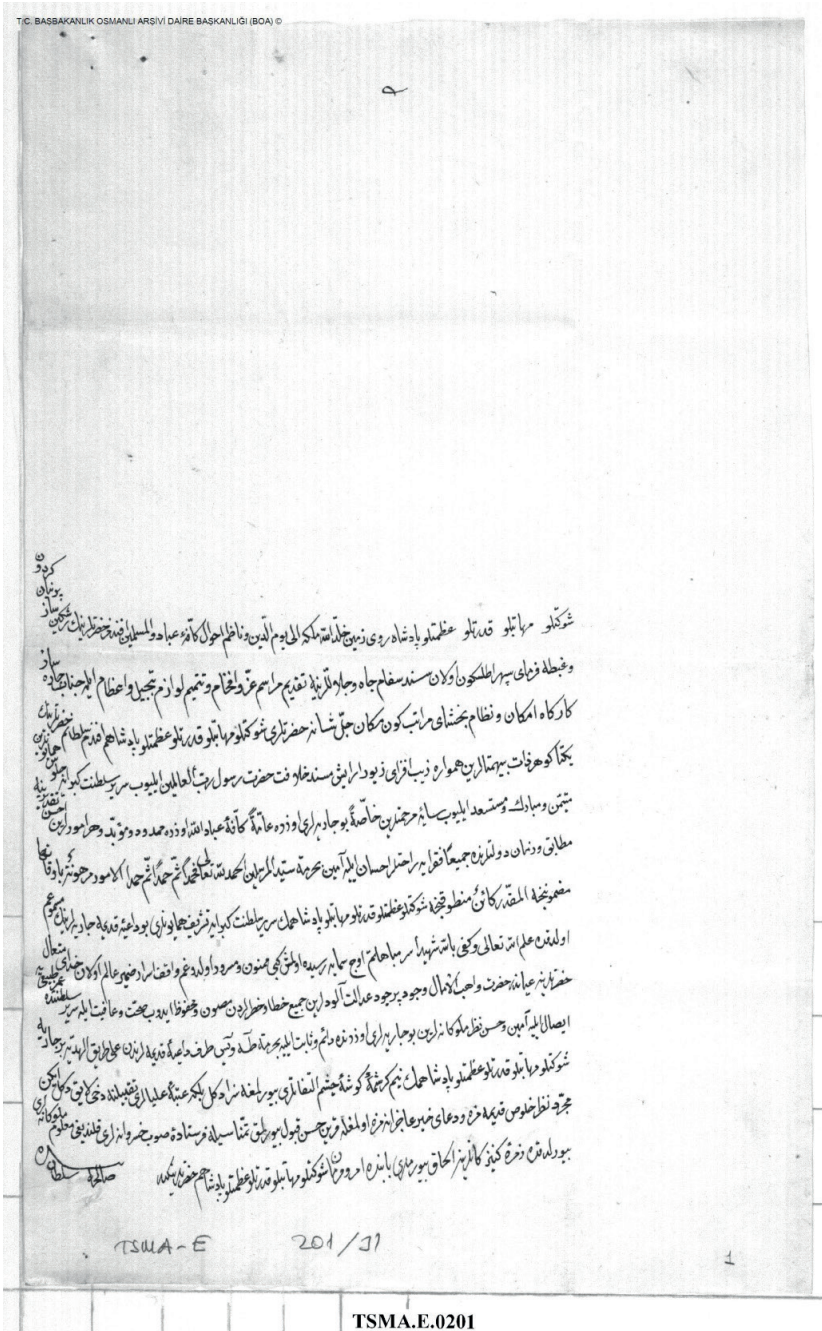 T.C. BAŞBAKANLIK OSMANLI ARŞİVİ DAİRE BAŞKANLIĞI (BOA) ©
شوكتلو مهابتلو قدرتلو عظمتلو پادشاه روی زمین خلّد الله ملکه الی یوم الدّین و ناظم احوال کافّهٔ عباد و المسلمین افندم حضرتلرینك
و غبطه فرمای سپهر اطلسکون اولان مسند سفام جاه و جلاللرینه تقدیم مراسم عزّ و افخام و تتمیم لوازم تبجیل و اعظام ایله جناب
کارکاه امکان و نظام بخشای مراتب کون مکان جلّ شانه حضرتلری شوکتلو مهابتلو قدرتلو عظمتلو پادشاهم افندم
یکتا کوهر ذات بیهمتالرین همواره زیب افزای زیور آرایش مسند خلافت حضرت رسول ربّ العالمین ایلیوب سریر سلطنت
متیمّن و مبارك و مستسعد ایلیوب سایهٔ مرحمتلرین خاصّةً بو جاریه لری اوزره عامّةً کافّهٔ عباد الله اوزره ممدود و مؤبّد و هر امورلرین
مطابق و زمان دولتلرنده جمیعاً فقرایه راحتلر احسان ایلیه آمین بحرمة سیّد المرسلین الحمد لله تعالی ثم حمداً ثم حمداً الامور مرهونة باوقاتها
مضموننجه المقدّر کائن منطوقنجه شوکتلو عظمتلو قدرتلو مهابتلو پادشاهمك سریر سلطنت تشریف همایونلری بو داعیهٔ قدیمه جاریه لرینك
اولدقده علم الله تعالی و کفی بالله شهیدا سر مباهاتم اوج سمایه رسیده اولمش کبی ممنون و مسرور اولدوغم واقف اسرار ضمیر عالم اولان خدای متعال
حضرتلرینه عیاندر حضرت واهب الامال وجود پرجود عدالت آلودلرین جمیع خطا و خطرلردن مصون و محفوظ ایدوب صحّت و عافیت ایله سریر سلطنتده
ایصال ایلیه آمین و حسن نظر ملوکانه لرین بو جاریه لری اوزرنده دائم و ثابت ایلیه بحرمة طه و یس طرف داعیهٔ قدیمه لرندن علی طریق الهدیه
شوکتلو مهابتلو قدرتلو عظمتلو پادشاهمك نیم کرشمهٔ کوشهٔ چشم التفاتلری بیورلمغه سزا دکل بلکه عتبهٔ علیالری تقبیلنه دخی لایق دکل ایکن
مجرّد نظر خلوص قدیمه مزه و دعای خیر عاجزانه مزه اولمغله قرین حسن قبول بیورلمق تمنّاسیله فرستادهٔ صوب خسروانه لری قلندیغی معلوم ملوکانه لری
بیورلدقده زمرهٔ کنیزکانلرینه الحاق بیورملری بابنده امر و فرمان شوکتلو مهابتلو قدرتلو عظمتلو پادشاهم حضرتلرینکدر
صالحه سلطان
TSMA-E 201/11
1
TSMA.E.0201